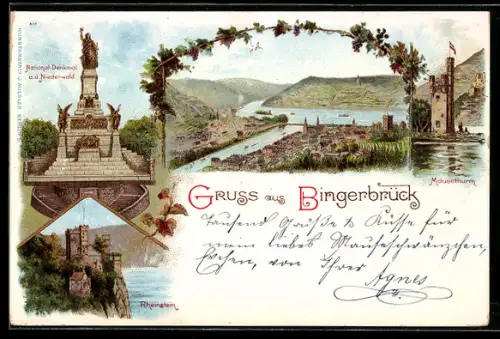 National-Denkmal
a.d. Niederwald
Mäusethurm
Gruss aus Bingerbrück
Rheinstein
Tausend Grüße & Küsse für
mein liebes Mauseschwänzchen,
von Ihrer
Agnes